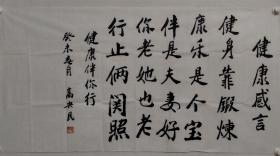 健康感言
健身靠鍛煉
康乐是个宝
伴是夫妻好
你老她也老
行止俩関照
健康伴你行
癸未春月 高央民